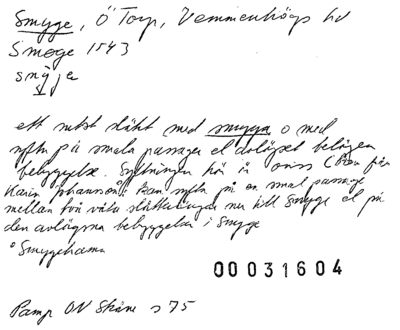 Smyge, Ö Torp, Vemmenhögs hd
Smoge 1543
smyja
ett subst släkt med smyga o med
syfta på smala passager el avlägset belägen
bebyggelse. Syftningen här är oviss
Karin kan syfta på en smal passage
mellan två våta slättningar ner till Smyge el på
den avlägsna bebyggelsen i Smyge
° Smygehamn
00031604
Pamp ON Skåne s 75